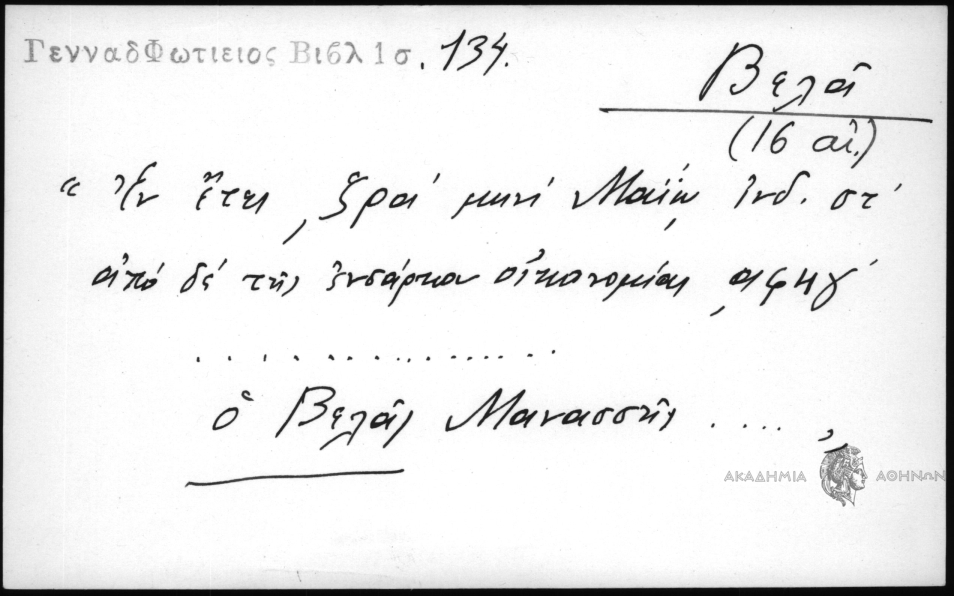 ΓενναδΦωτιειος Βιβλ 1 σ. 134.
Βελᾶ
(16 αἰ.)
"Ἐν ἔτει ͵ζραʹ μηνί Μαΐῳ ἰνδ. στʹ
ἀπό δέ τῆς ἐνσάρκου οἰκονομίας ͵αφηγʹ
. . . . . . . . . . . . . . .
ὁ Βελᾶς Μανασσῆς ....."
ΑΚΑΔΗΜΙΑ ΑΘΗΝΩΝ